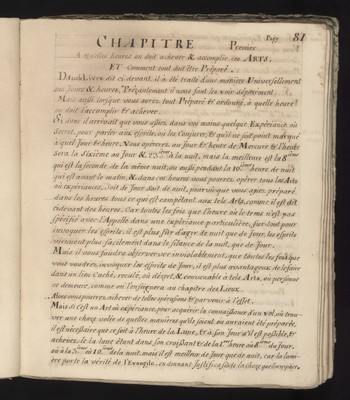 Page 81
CHAPITRE Premier
A quelles heures on doit achever & accomplir les ARTS,
ET Comment tout doit être Préparé.
Dans le Livre dit ci-devant, il a été traité d'une manière Universellement
des Jours & heures, Présentement il nous faut les voir séparément.
Mais aussi lorsque vous aurez tout Préparé et ordonné, à quelle heure
on doit l'accomplir & achever.
Si donc il arrivait que vous ayïez dans vos mains quelque Expérience, ou
Secret, pour parler aux esprits, ou les Conjurer, & qu'il ne soit point marqué
à quel Jour & heure. Nous opérerez au Jour & heure de Mercure & l'heure
Sera la Sixième au Jour & de la nuit, mais la meilleure est la 8
qui est la seconde de la même nuit, ou aussi pendant la heure de nuit
qui est avant le matin, & dans ces heures vous pourrez opérer tous les Arts
ou expériences, soit de Jour, soit de nuit, pourvu que vous ayïez préparé
dans les heures tout ce qui est compétant aux tels Arts, comme il est dit
cidevant des heures. Car toutes les fois que l'heure ou le tems n'est pas
spécifié avec dans une expérience particulière, sur tout pour
invoquer les esprits, il est plus sûr d'agir de nuit que de Jour, les esprits
viennent plus facilement dans le silence de la nuit, que de Jour.
Mais il vous faudra observer inviolablement, que toutes les fois que
vous voudrez invoquer les esprits de Jour, il est plus avantageux de le faire
dans un lieu Caché, reculé, ou désert, & convenable à tels Arts, où personne
ne demeure, comme on l'enseignera au chapitre des Lieux.
Alors vous pourrez achever de telles opérations & parvenir à l'effet.
Mais si c'est un Art ou expérience, pour acquérir la connaissance d'un vol, ou trou-
ver une chose volée de quelles manières qu'ils soient ou auraient été préparés,
il est nécessaire que ce soit à l'heure de la Lune, & à son Jour s'il est possible, &
achever, & la lune étant dans son croissant & de la 1 heure ou 8 du Jour,
ou à la ou 10 de la nuit, mais il est meilleur de Jour que de nuit, car la lumi-
ère porte la vérité de l'Evangile, en donnant